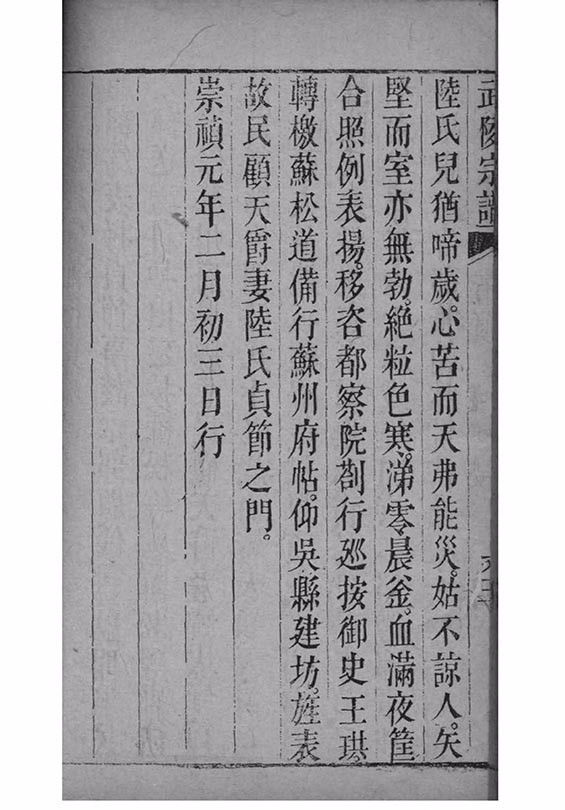 武陵宗譜
陸氏兒猶啼歲。心苦而天弗能災。姑不諒人。矢
堅而室亦無勃。絶粒色寒。涕零晨釜。血滿夜筐
合照例表揚。移咨都察院劄行廵按御史王珙。
轉檄蘇松道備行蘇州府帖。仰吳縣建坊。旌表
故民顧天爵妻陸氏貞節之門。
崇禎元年二月初三日行